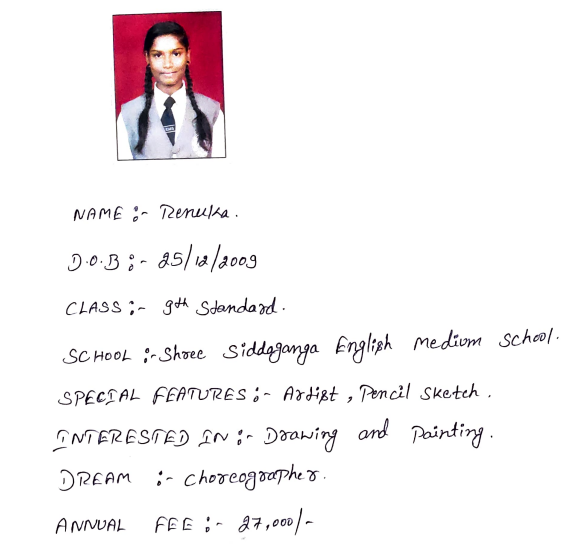 NAME :- Renuka.
D.O.B :- 25/12/2009
CLASS :- 9th Standard.
SCHOOL :- Shree Siddaganga English Medium School.
SPECIAL FEATURES :- Artist, Pencil Sketch.
INTERESTED IN :- Drawing and Painting.
DREAM :- Choreographer.
ANNUAL FEE :- 27,000/-